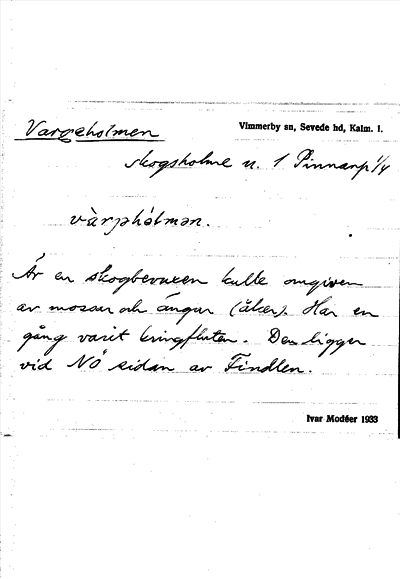 Vargeholmen
Vimmerby sn, Sevede hd, Kalm. l.
skogsholme u. 1 Pinnarp 1/4
Är en skogbevuxen kulle omgiven
av mossar och ängar (åker). Har en
gång varit kringfluten. Den ligger
vid NÖ sidan av Findlen.
Ivar Modéer 1933